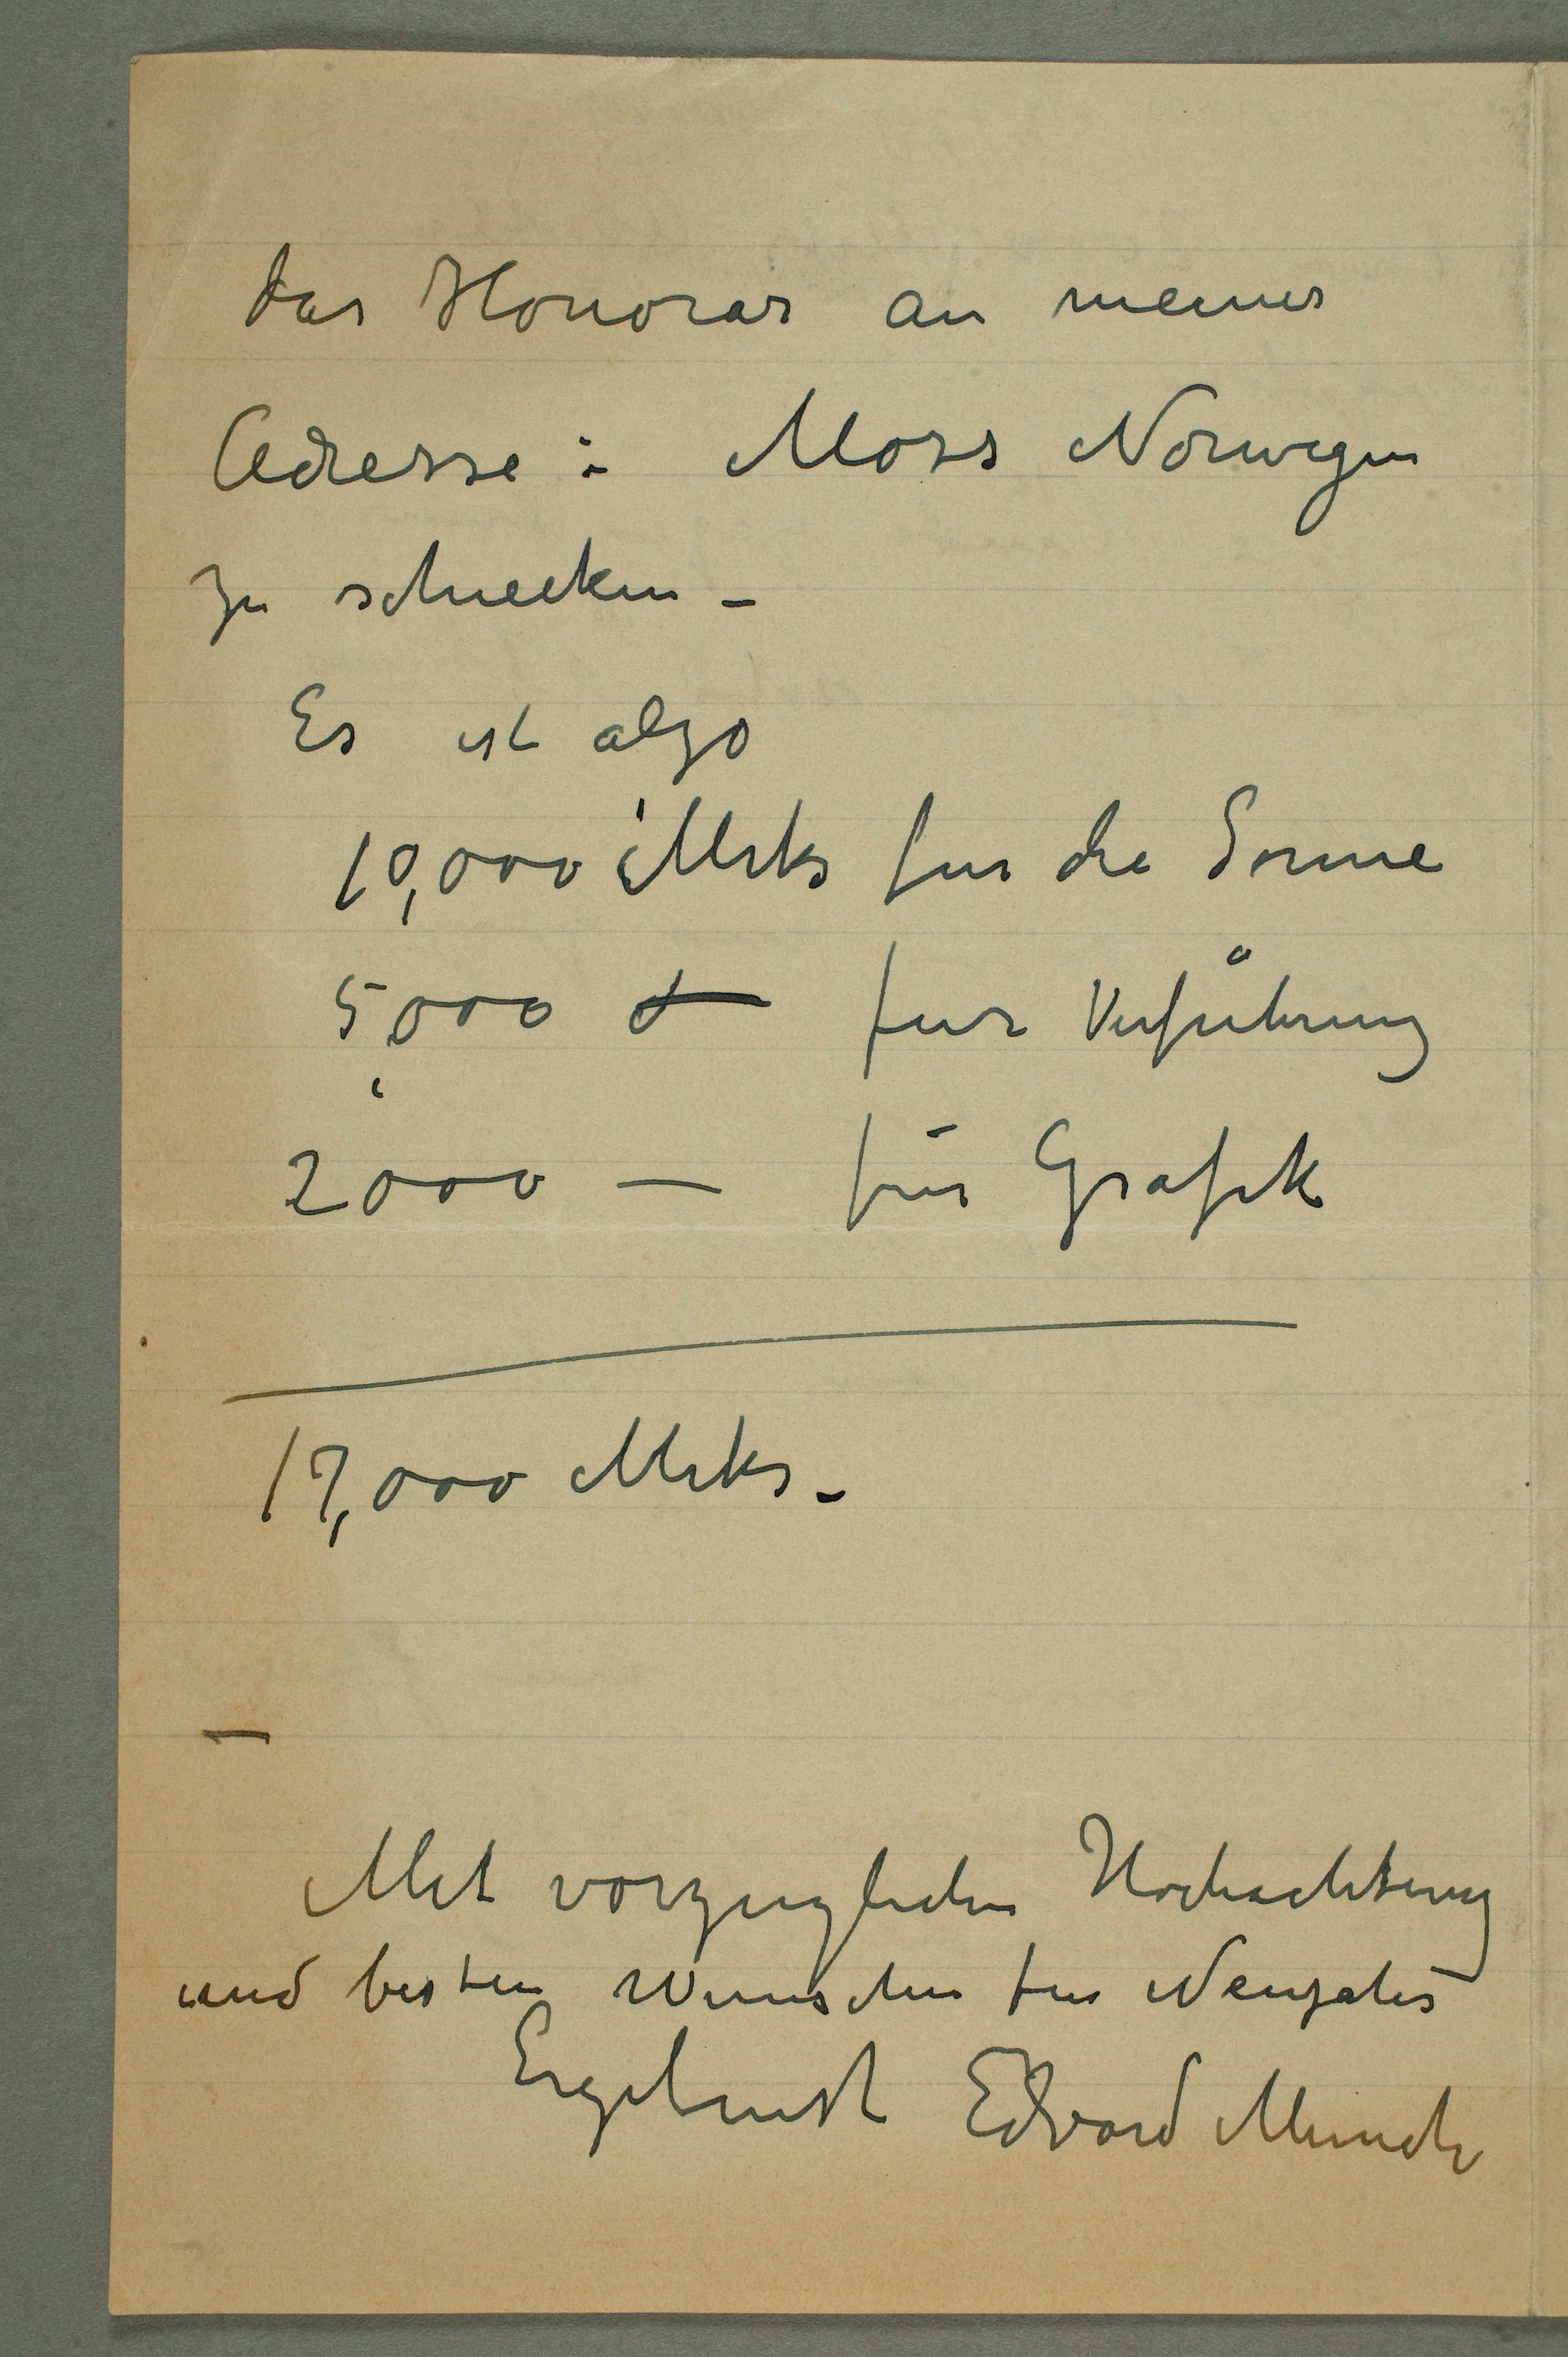 das Honorar an meiner
Adresse: Moss Norwegen
zu schiecken –
Es ist alzo
10,000 Mrks fur die Sonne
5,000 – fur Verführung
2000 – für Grafik
17,000 Mrks –
–
Mit vorzuglichen Hochachtung
und besten Wunschen fur Neujahr
Ergebenst Edvard Munch